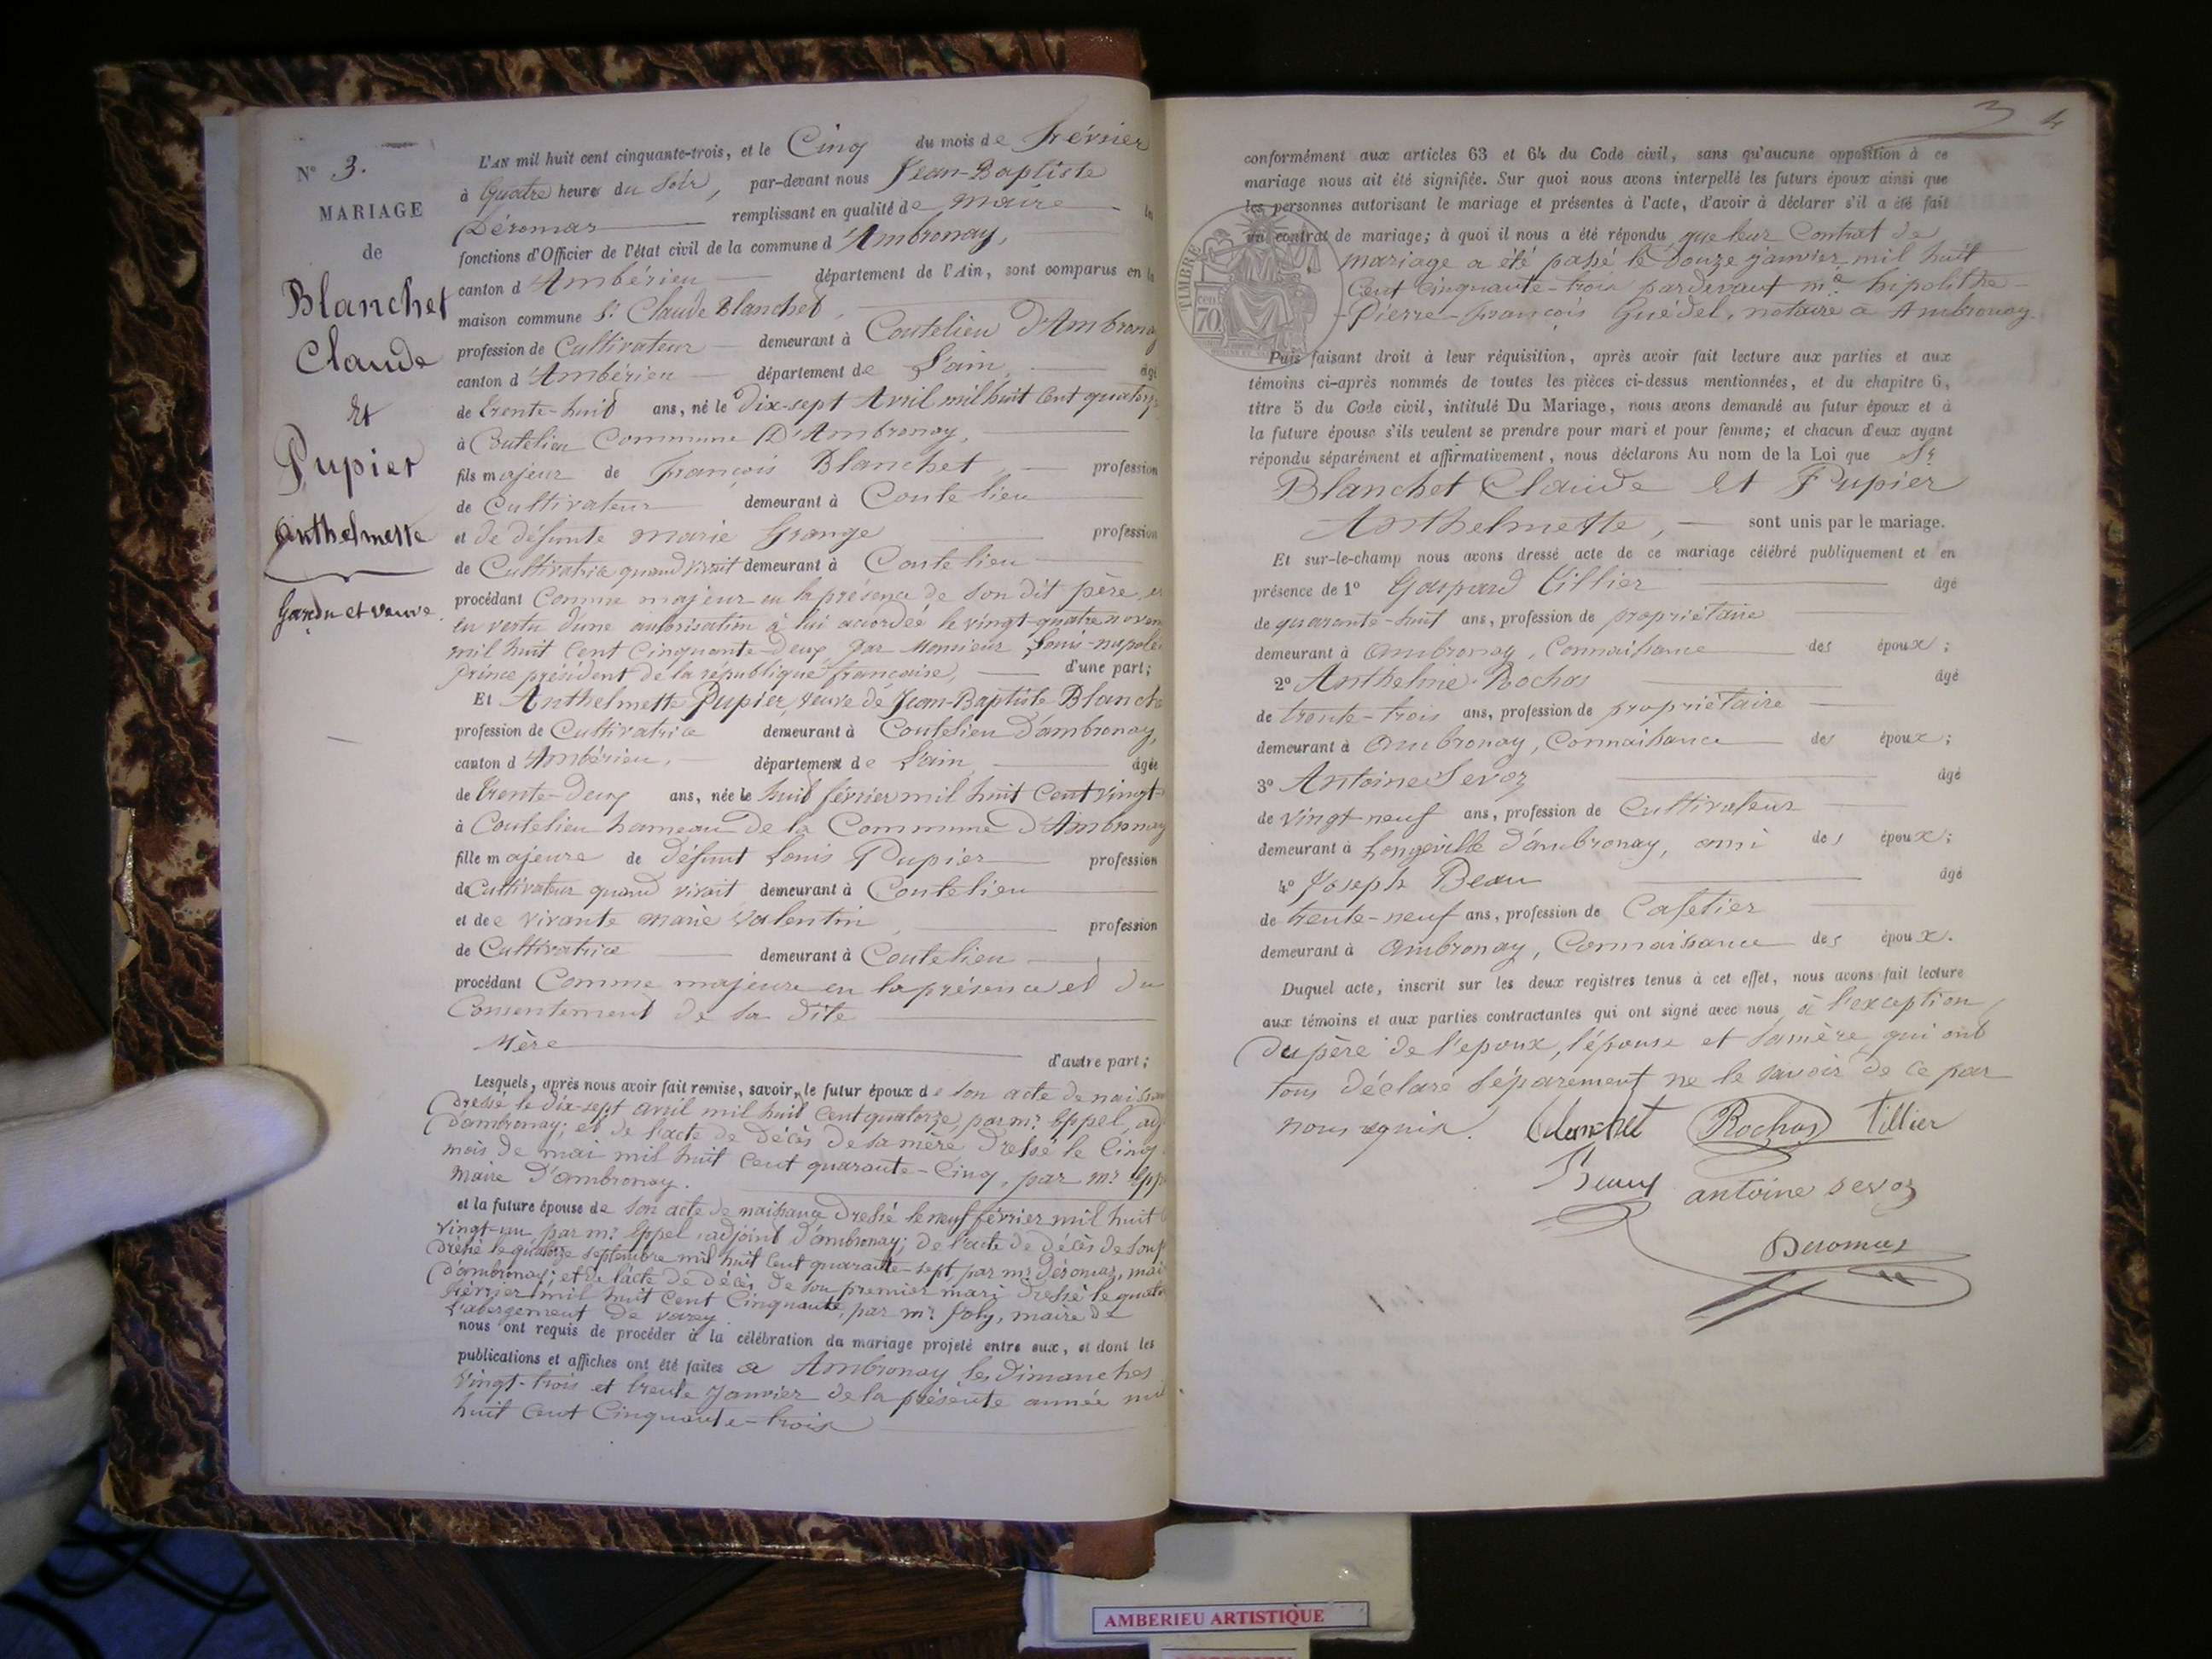 N° 3.
MARIAGE
de
Blanchet
Claude
Et
Pupier
Anthelmette
Garçon et veuve
L'AN mil huit cent cinquante-trois, et le Cinq du mois de Février
à Quatre heures du Soir, par-devant nous Jean-Baptiste
Déromas remplissant en qualité de Maire les
fonctions d'Officier de l'état civil de la commune d'Ambronay,
canton d'Ambérieu département de l'Ain, sont comparus en la
maison commune Sr Claude Blanchet,
profession de Cultivateur demeurant à Coutelieu D'Ambronay
canton d'Ambérieu département de L'ain, âgé
de trente-huit ans, né le Dix-sept Avril mil huit Cent quatorze
à Coutelieu Commune D'Ambronay,
fils majeur de François Blanchet, profession
de Cultivateur demeurant à Coutelieu
et de défunte Marie Grange profession
de Cultivatrice quand vivait demeurant à Coutelieu
procédant Comme majeur en la présence de son dit père, et
en vertu d'une autorisation à lui accordée le vingt-quatre novem
mil huit Cent Cinquante-deux, par Monsieur Louis-napoléo
prince président de la république française, d'une part;
Et Anthelmette Pupier, veuve de Jean-Baptiste Blanche
profession de Cultivatrice demeurant à Coutelieu D'ambronay,
canton d'Ambérieu, département de L'ain, âgée
de trente-deux ans, née le huit février mil huit Cent vingt-
à Coutelieu hameau de la Commune D'Ambronay
fille majeure de Défunt Louis Pupier profession
de Cultivateur quand vivait demeurant à Coutelieu
et de vivante Marie Valentin, profession
de Cultivatrice demeurant à Coutelieu
procédant Comme majeure en la présence et du
Consentement de sa dite
Mère d'autre part;
Lesquels, après nous avoir fait remise, savoir, le futur époux de son acte de naissan
dressé le dix-sept avril mil huit Cent quatorze, par mr Eppel, adj
d'ambronay; et de l'acte de Décès de sa mère Dressé le Cinq
mois de mai mil huit Cent quarante-Cinq, par mr Epp
Maire D'ambronay.
et la future épouse de son acte de naissance Dressé le neuf février mil huit C
vingt-un, par mr Eppel, adjoint d'ambronay; de l'acte de décès de son p
dressé le quatorze septembre mil huit Cent quarante-sept, par mr Déromas, mai
D'ambronay; et de l'acte de Décès de son premier mari Dressé le quato
février mil huit Cent Cinquante, par mr Joly, maire de
L'abergement de varey.
nous ont requis de procéder à la célébration du mariage projeté entre eux, et dont les
publications et affiches ont été faites à Ambronay les Dimanches
Vingt-trois et trente Janvier de la présente année mil
huit Cent Cinquante-trois
3 4
conformément aux articles 63 et 64 du Code civil, sans qu'aucune opposition à ce
mariage nous ait été signifiée. Sur quoi nous avons interpellé les futurs époux ainsi que
les personnes autorisant le mariage et présentes à l'acte, d'avoir à déclarer s'il a été fait
un contrat de mariage; à quoi il nous a été répondu que leur Contrat de
mariage a été passé le Douze janvier mil huit
Cent Cinquante-trois pardevant me hipolithe-
Pierre-françois Guédel, notaire à Ambronay.
TIMBRE
70 cent
Puis faisant droit à leur réquisition, après avoir fait lecture aux parties et aux
témoins ci-après nommés de toutes les pièces ci-dessus mentionnées, et du chapitre 6,
titre 5 du Code civil, intitulé Du Mariage, nous avons demandé au futur époux et à
la future épouse s'ils veulent se prendre pour mari et pour femme; et chacun d'eux ayant
répondu séparément et affirmativement, nous déclarons Au nom de la Loi que Sr
Blanchet Claude Et Pupier
Anthelmette, sont unis par le mariage.
Et sur-le-champ nous avons dressé acte de ce mariage célébré publiquement et en
présence de 1° Gaspard Tillier âgé
de quarante-huit ans, profession de propriétaire
demeurant à Ambronay, Connaissance des époux;
2° Anthelme Rochas âgé
de trente-trois ans, profession de propriétaire
demeurant à Ambronay, Connaissance des époux;
3° Antoine Sevoz âgé
de vingt-neuf ans, profession de Cultivateur
demeurant à Longeville D'ambronay, ami des époux;
4° Joseph Beau âgé
de trente-neuf ans, profession de Cafetier
demeurant à Ambronay, Connaissance des époux.
Duquel acte, inscrit sur les deux registres tenus à cet effet, nous avons fait lecture
aux témoins et aux parties contractantes qui ont signé avec nous à l'exception
du père de l'époux, l'épouse et sa mère qui ont
tous déclaré séparément ne le savoir de ce par
nous requis. Blanchet Rochas Tillier
antoine sevoz
Deromas
AMBERIEU ARTISTIQUE